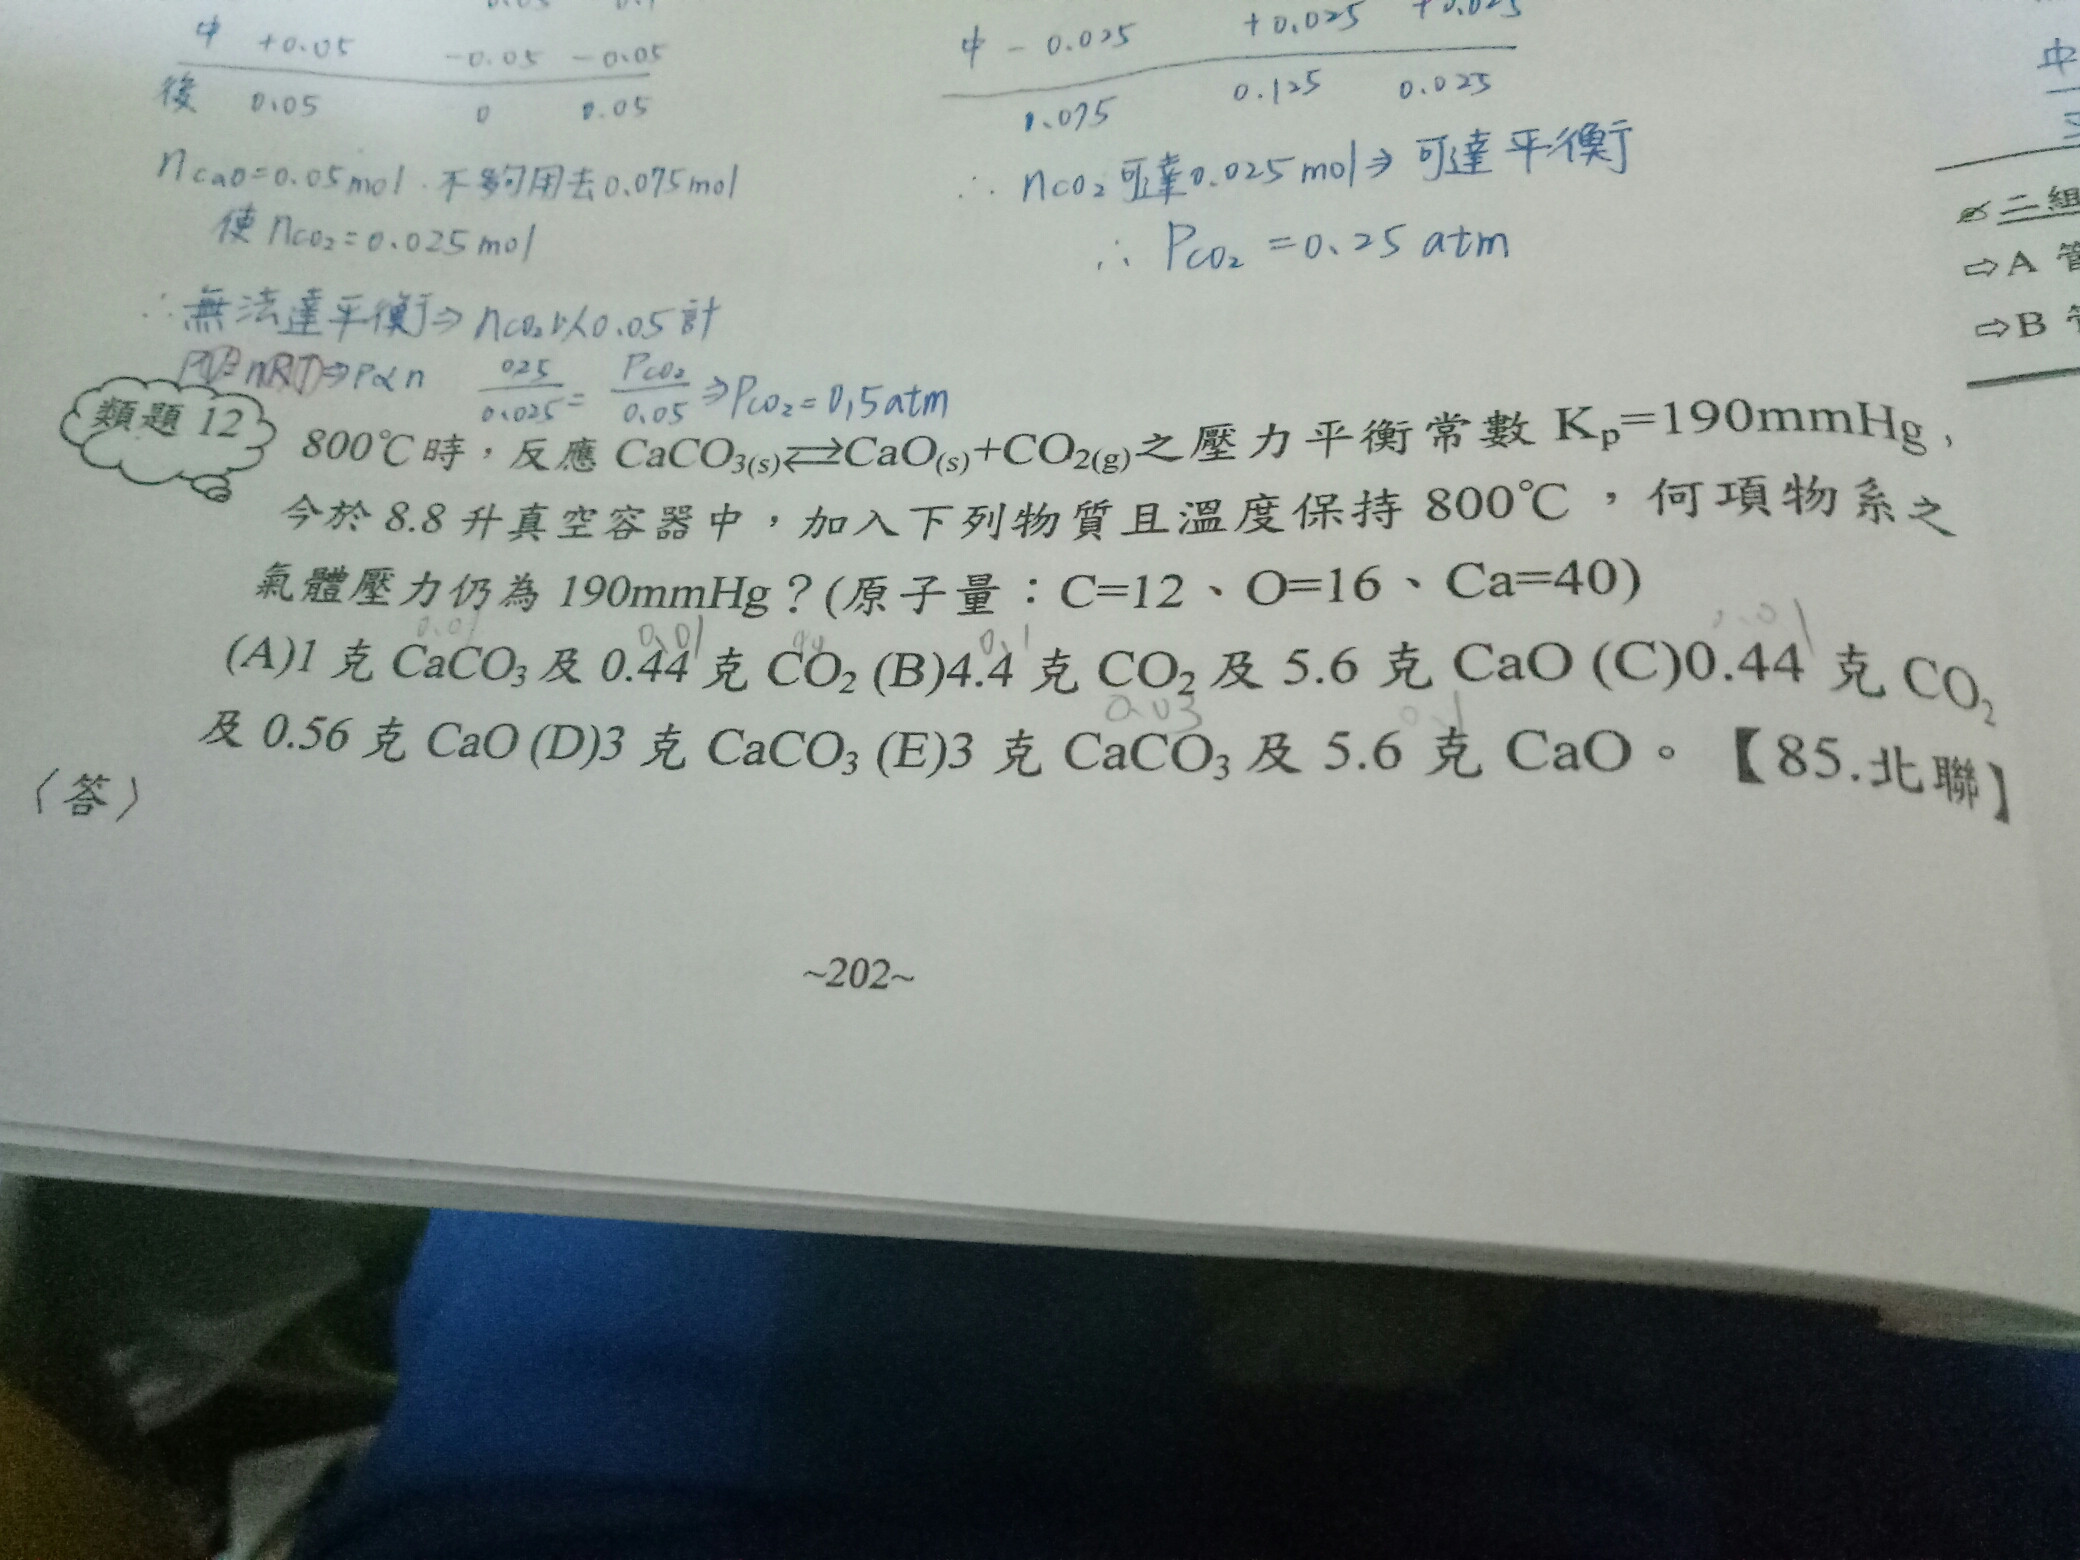 中 +0.05 -0.05 -0.05 中 -0.025 +0.025 +0.025
後 0.05 0 0.05 1.075 0.125 0.025
nCaO=0.05mol.不夠用去0.075mol ∴ nCO₂可達0.025mol⇒可達平衡
使nCO₂=0.025mol ∴ PCO₂=0.25 atm
∴無法達平衡⇒nCO₂以0.05計
PV=nRT⇒P∝n 025/0.025=PCO₂/0.05⇒PCO₂=0.5atm
二組
⇨A 管
⇨B
類題 12
800℃時,反應 CaCO₃(s)⇄CaO(s)+CO₂(g)之壓力平衡常數 Kp=190mmHg,
今於 8.8 升真空容器中,加入下列物質且溫度保持 800℃,何項物系之
氣體壓力仍為 190mmHg?(原子量:C=12、O=16、Ca=40)
0.01 0.01 0.1
(A)1 克 CaCO₃及 0.44 克 CO₂ (B)4.4 克 CO₂及 5.6 克 CaO (C)0.44 克 CO₂
0.03 0.1
及 0.56 克 CaO (D)3 克 CaCO₃ (E)3 克 CaCO₃及 5.6 克 CaO。【85.北聯】
〈答〉
~202~